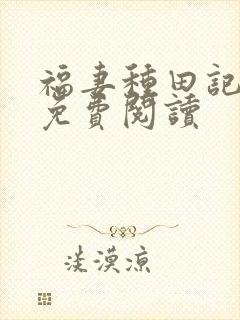 福妻種田記
免費閱讀
淡漠涼